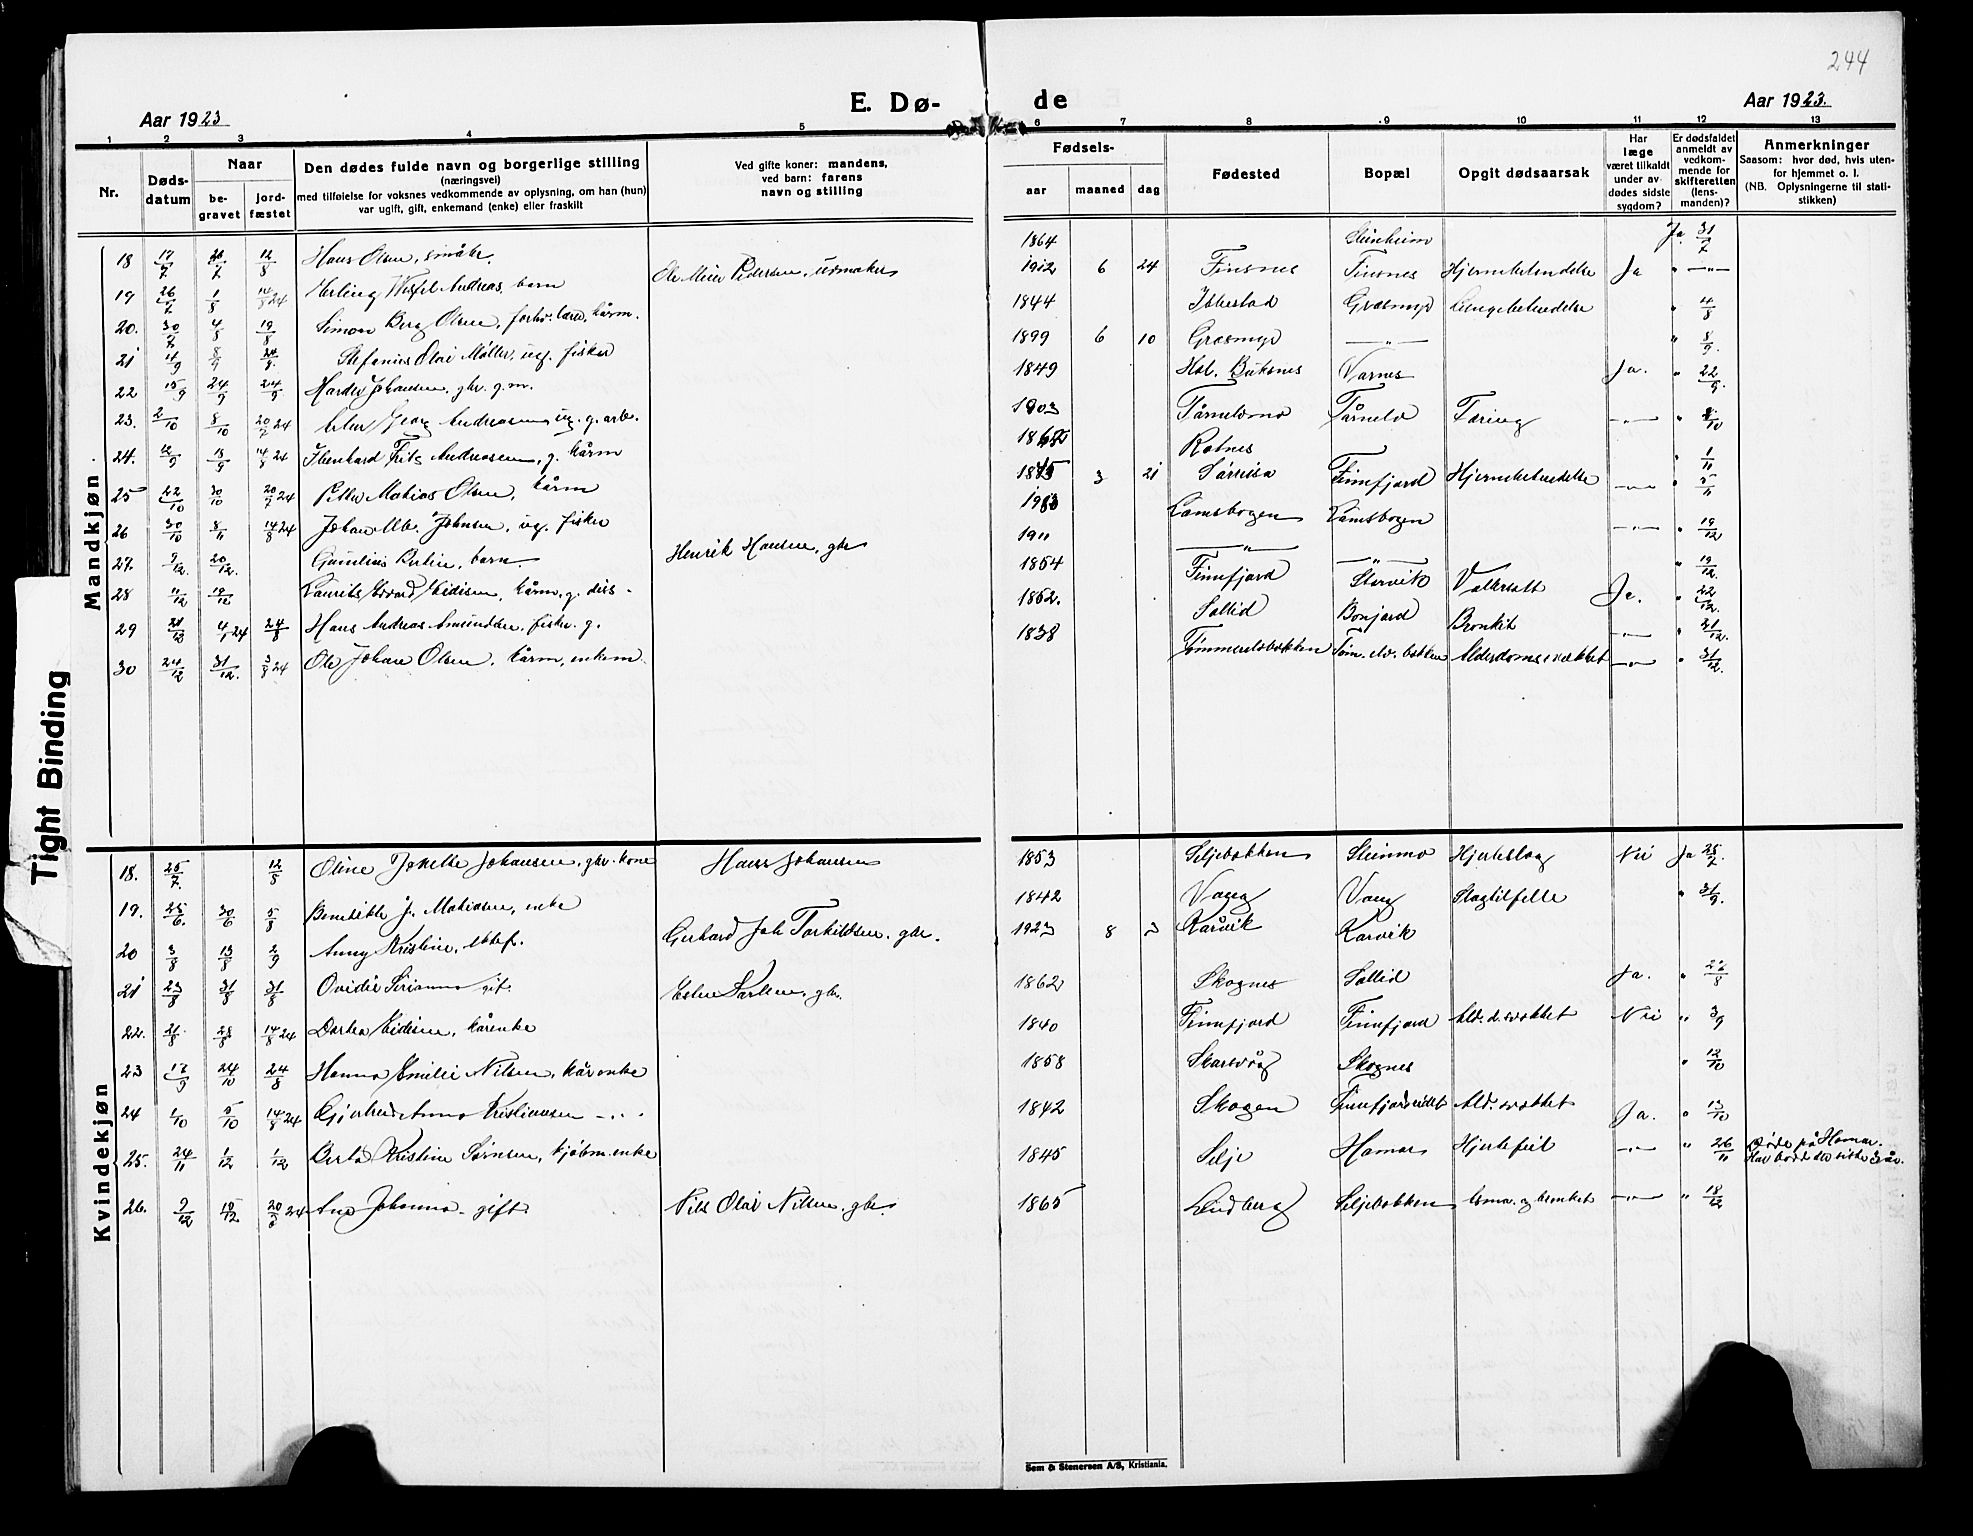 244
Aar 1923
E. Dø-
de
Aar 1923.
1 2 3 4 5 6 7 8 9 10 11 12 13
Nr.
Døds-
datum
Naar
be-
gravet
jord-
fæstet
Den dødes fulde navn og borgerlige stilling
(næringsvei)
med tilføielse for voksnes vedkommende av oplysning, om han (hun)
var ugift, gift, enkemand (enke) eller fraskilt
Ved gifte koner: mandens,
ved barn: farens
navn og stilling
Fødsels-
aar maaned dag
Fødested
Bopæl
Opgit dødsaarsak
Har
læge
været tilkaldt
under av-
dødes sidste
sygdom?
Er dødsfaldet
anmeldt av
vedkom-
mende for
skifteretten
(lens-
manden)?
Anmerkninger
Saasom: hvor død, hvis uten-
for hjemmet o. l.
(NB. Oplysningerne til stati-
stikken)
Mandkjøn
18 17/7 12/8 Hans Olsen, småbr. 1864 Steinheim Ja. 31/7
19 26/7 1/8 14/8 24 Andreas, barn Ole Meier Pedersen 1912 6 24 Finsnes Finsnes Hjernebetendelse Ja " —"—
20. 30/7 4/8 19/8 Simon Berg Olsen, kårm. 1844 Ibbestad Grasmyr Lungebetendelse " 4/8
21 4/9 8/9 24/9. Stefanius Olai Møller, ug. fisker 1899 6 10 Grasmyr —"— " 8/9.
22 15/9 24/9 24/9 Johansen, gbr. g.m. 1849 Hol. Buksnes Varnes Ja. " 22/9
23. 2/10 8/10 20/7 24 Georg Andreasen ug. g. arb. 1903 Tårnelvmo Tårnelv Tæring —"— " 8/10
24. 18/9 14/8 24 Frits Andreasen, g. kårm Rotnes " 1/11
25 22/10 30/10 20/7 24 Peder Matias Olsen, kårm 3 21 Sørreisa Finnfjord Hjernebetendelse —"— " 5/11
26 30/10 8/11 14/8 24 Johan Alb. Johnsen, ug. fisker Lamsbogen Lamsbogen —"— " 19/12
27. 9/12. 20/12. barn. Henrik Hansen, gbr 1911 —"— —"— " 19/12.
28 11/12 19/12 Laurits Edvard Eidisen, kårm, g. 1854 Finnfjord Storvik Ja. " 22/12.
29 21/12 4/1 24 24/8 Hans Andreas Amundsen, fisker. g. 1862. Sollid Bonjord Bronkit —"— " 31/12.
30 24/12 31/12. 3/8 24 Ole Johan Olsen, kårm, enkem. 1838 Tømmerelvbakken Tøm. elv. bakken Alderdomssvækket —"— " 31/12.
Kvindekjøn
18. 25/7. 12/8 Oline Johansen, gbr. kone Hans Johansen 1853 Seljebakken Steinmo Hjerteslag Nei Ja 25/7.
19. 25/6. 30/6 5/8 Benedikte J. Matiasen, enke 1842 Vang Vang Slagtilfelle " 31/9.
20 3/8 13/8 2/9 Anny Kristine, Gerhard Joh Torkildsen, gbr. 1923 8 3 Kårvik Karvik
21 23/8 31/8 31/8 Ovidie gift. 1862 Skognes Sollid Ja. " 27/8
22. 21/8 28/8 14/8 24 Dortea Eidisen, kårenke 1840 Finnfjord Finnfjord Ald. d. svækket Nei " 3/9
23 17/9 24/10 24/8 Hanna Emilie Nilsen, kårenke 1858 Skarsvåg Skognes " 12/10
24 1/10 5/10 14/8 24 Gjertrud Anna Kristiansen — . . 1842 Skogen Finnfjordeidet Ald. svækket Ja. " 13/10
25. 24/11 1/12 1/12 Berta Kristine Sørnsen, kjøbm. enke 1845 Selje Hamar Hjertefeil —"— " 26/11 Døde på Hamar.
Har bodd der siste 3 år.
26. 9/12 15/12 20/8 24 Ane Johanna — gift. Nils Olai Nilsen, gbr 1865 Lindberg Seljebakken —"— " 18/12
Tight Binding
Sem & Stenersen A/S, Kristiania.